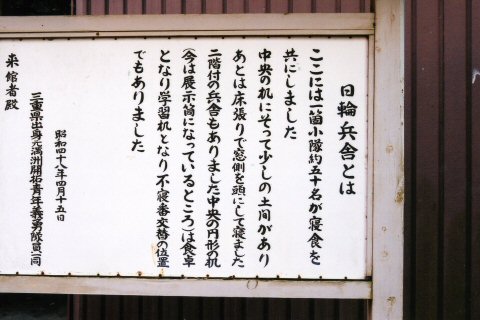 日輪兵舎とは
ここには一箇小隊約五十名が寝食を
共にしました
中央の机にそって少しの土間があり
あとは床張りで窓側を頭にして寝ました
二階付の兵舎もありました中央の円形の机
(今は展示筒になっているところ)は食卓
となり学習机となり不寝番交替の位置
でもありました
昭和四十八年四月十五日
三重県出身元満洲開拓青年義勇隊員一同
来館者殿